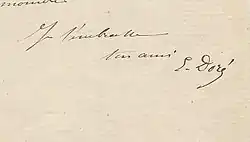 Je t'embrasse
ton ami
E. Doré